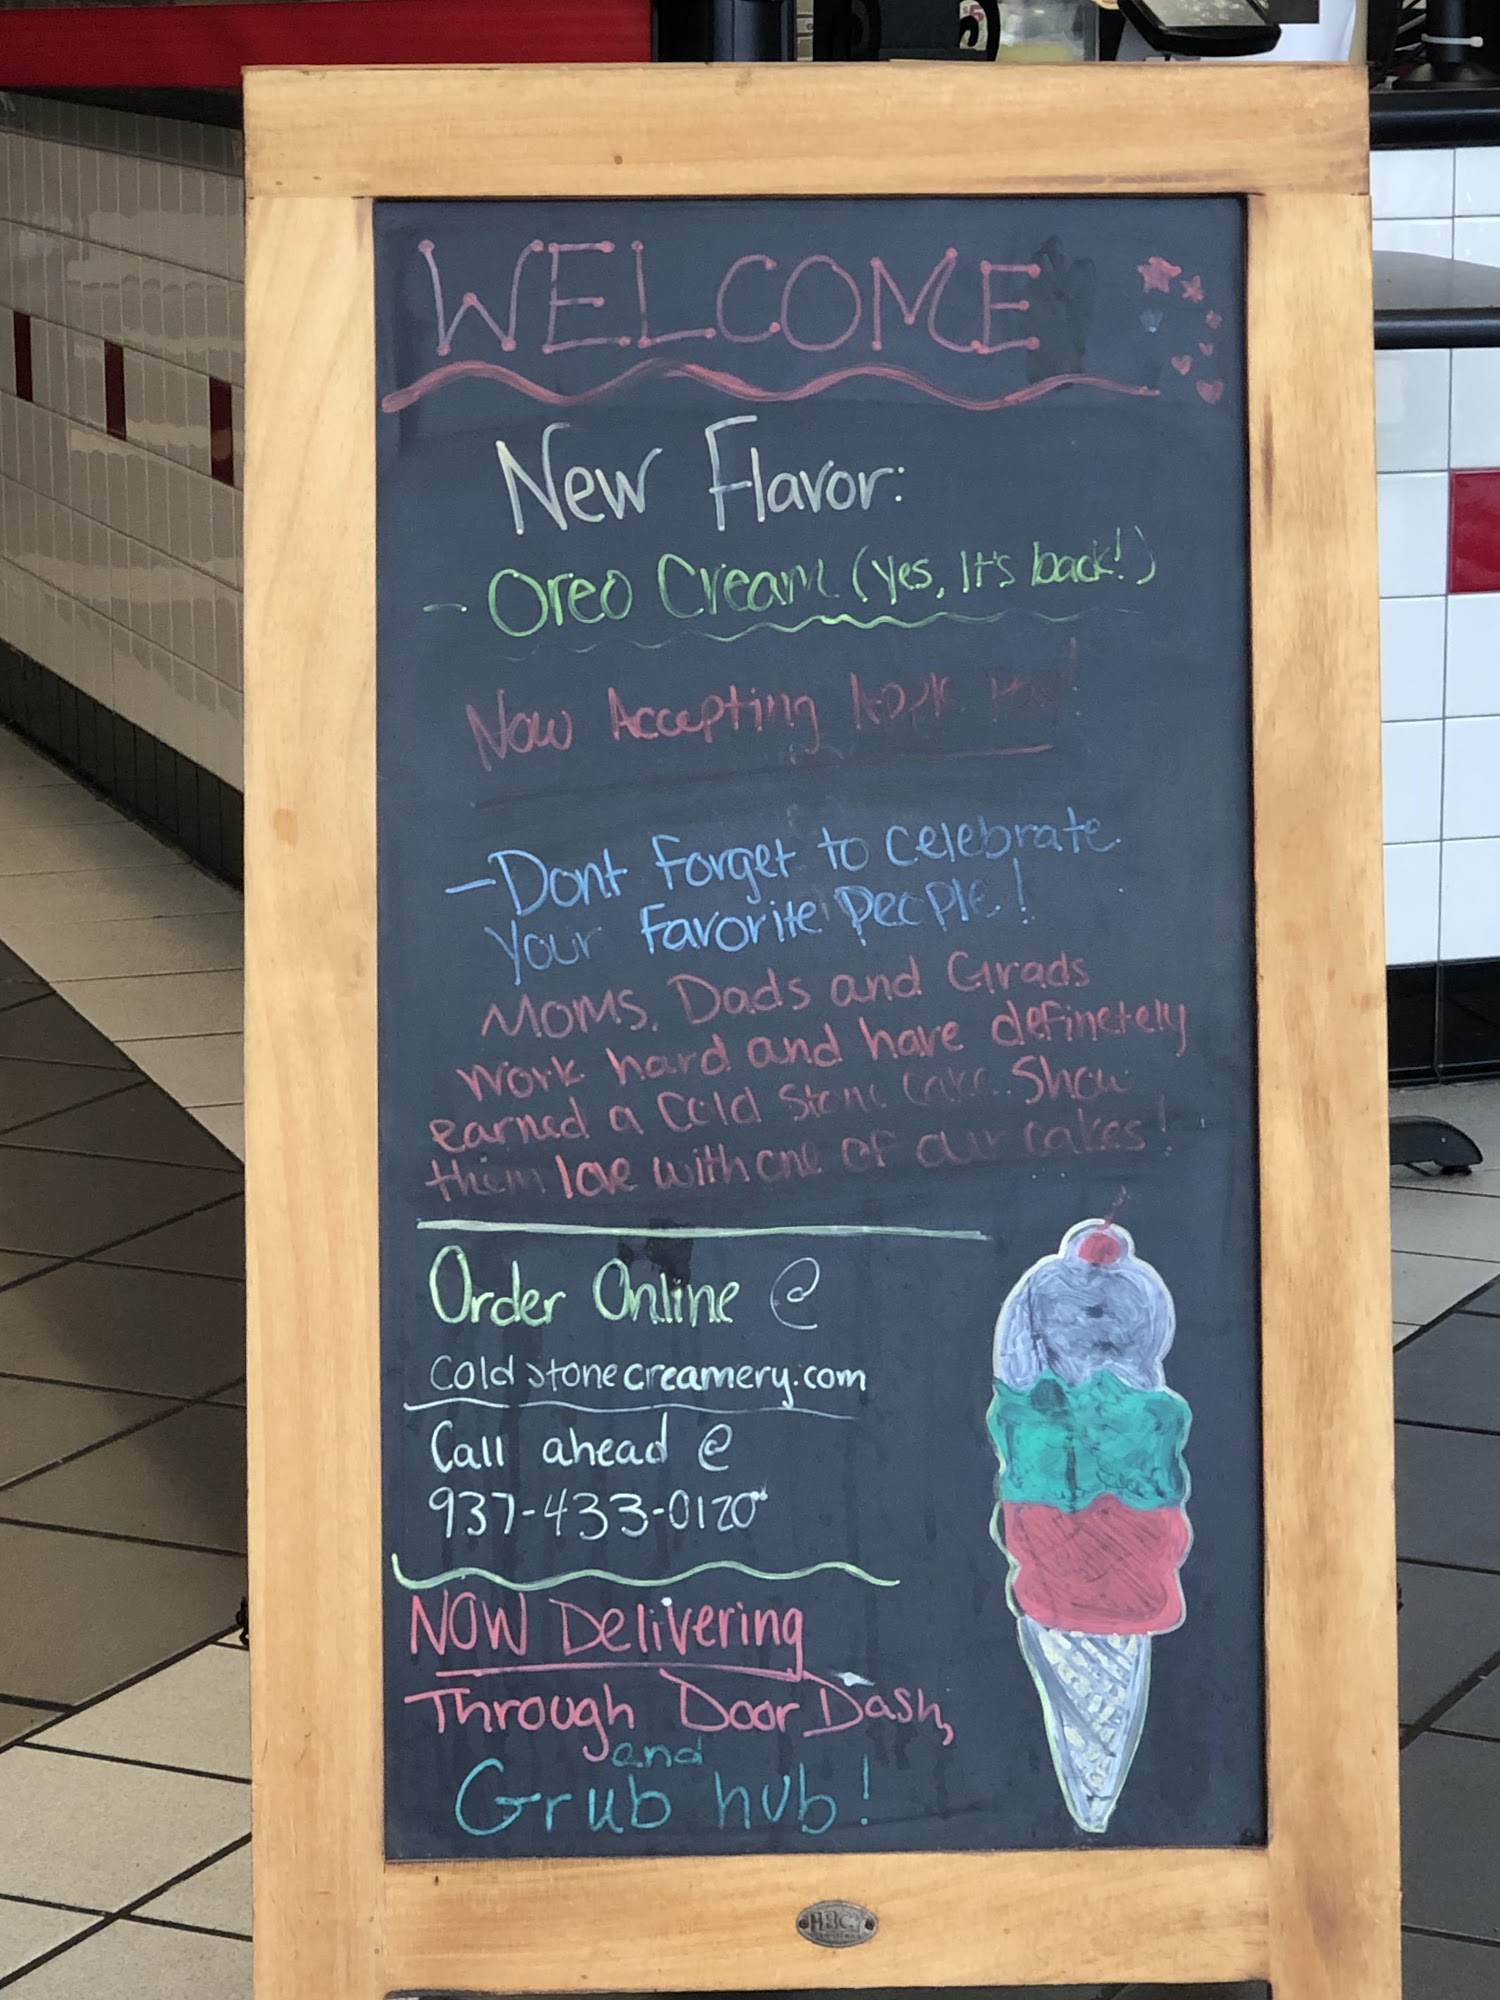 WELCOME
New Flavor:
- Oreo Cream (Yes, It's back!)
Now Accepting Apple Pay!
- Dont Forget to celebrate
your Favorite People!
Moms, Dads and Grads
work hard and have definetely
earned a Cold Stone Cake. Show
them love with one of our cakes!
Order Online @
Coldstonecreamery.com
Call ahead @
937-433-0120
NOW Delivering
Through DoorDash,
and
Grub hub!